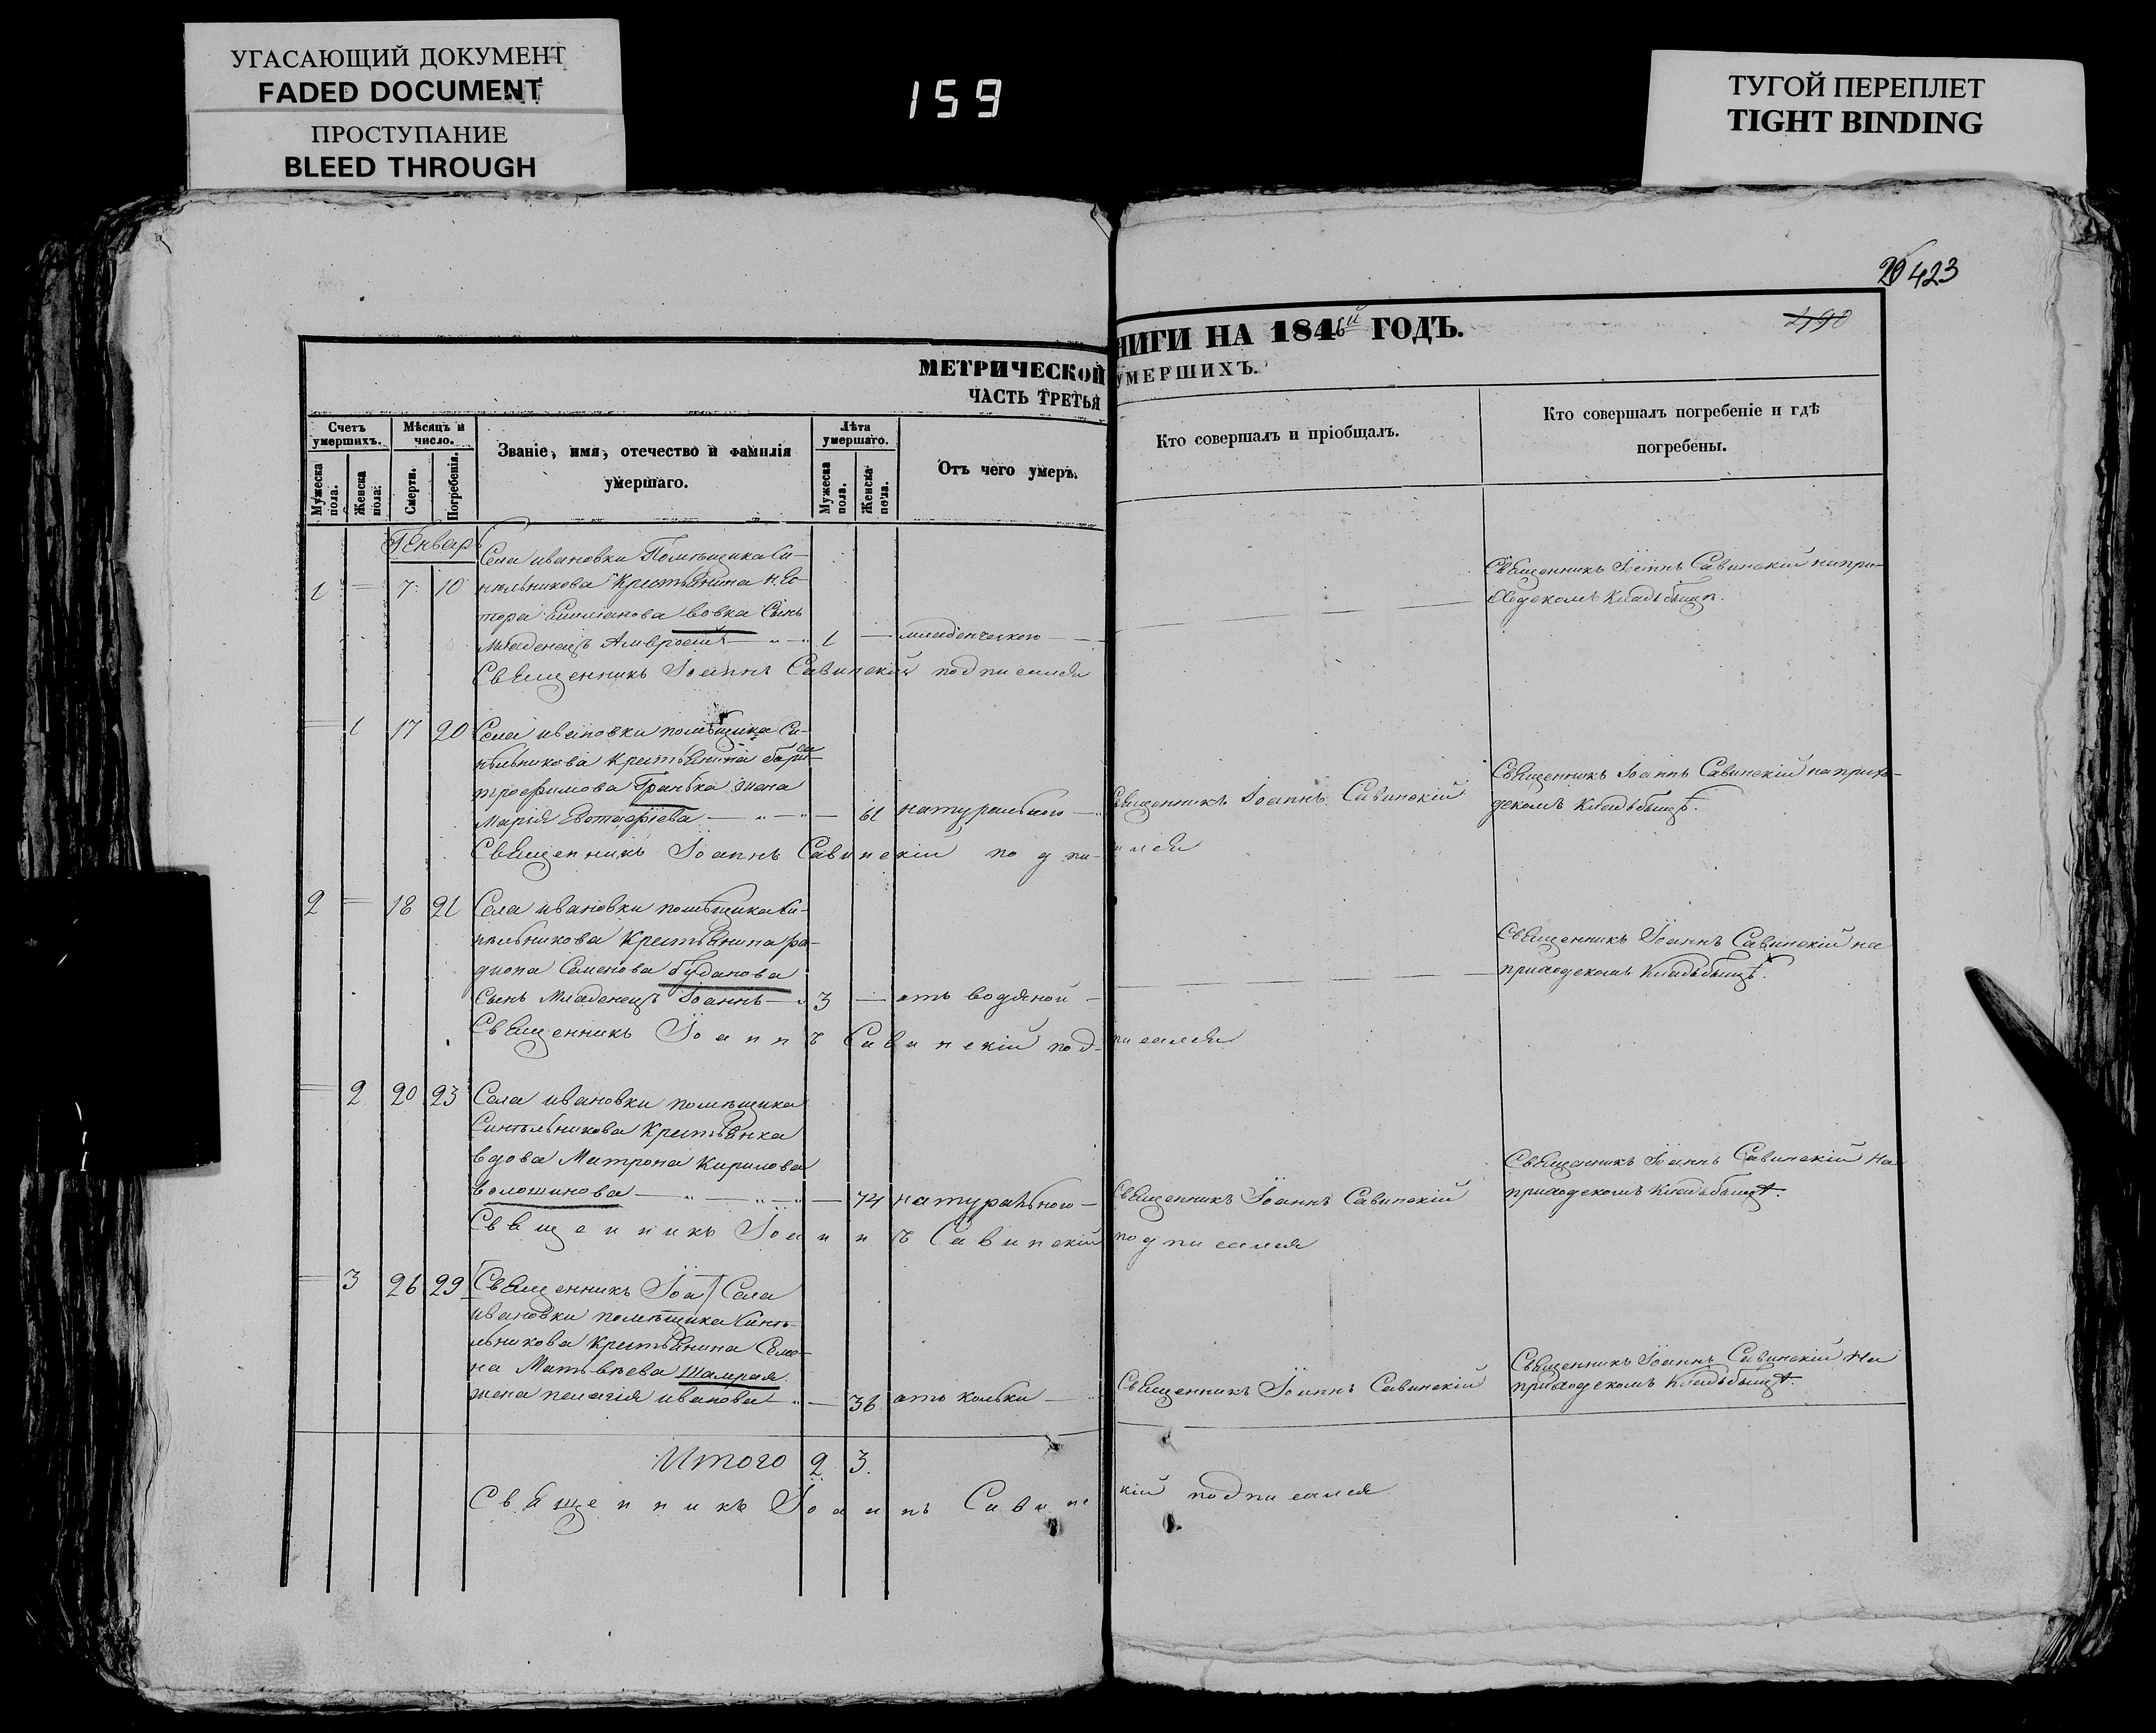 УГАСАЮЩИЙ ДОКУМЕНТ
FADED DOCUMENT
ПРОСТУПАНИЕ
BLEED THROUGH
159
ТУГОЙ ПЕРЕПЛЕТ
TIGHT BINDING
423
490
МЕТРИЧЕСКОЙ
НИГИ НА 1846й ГОДЪ.
ЧАСТЬ ТРЕТЬЯ
УМЕРШИХЪ.
Счетъ умершихъ.
Мужеска пола.
Женска пола.
Мѣсяцъ и число.
Смерти.
Погребенія.
Званіе, имя, отечество и фамилія умершаго.
Лѣта умершаго.
Мужеска пола.
Женска пола.
Отъ чего умеръ.
Кто совершалъ и пріобщалъ.
Кто совершалъ погребеніе и гдѣ
погребены.
Генварь
1 — 7 10
Села ивановки Помѣщика Си-
нѣльникова Крестьянина Нес-
тора Вовка Сынъ
Младенецъ Амвросій — 1 — младенческого —
Священникъ Іоаннъ Савинскій на при-
ходскомъ Кладьбищѣ.
Священникъ Іоаннъ Савинскій подписался
— 1 17 20
Села ивановки помѣщика Си-
нѣльникова Крестьянина
трофимова жена
Марія — 61 натурального —
Священникъ Іоаннъ Савинскій
Священникъ Іоаннъ Савинскій на прихо-
дскомъ Кладьбищѣ.
Священникъ Іоаннъ Савинскій подписался
2 — 18 21
Села ивановки помѣщика Си-
нѣльникова Крестьянина ра-
диона Семенова буданова
Сынъ Младенецъ Іоаннъ — 3 — отъ водяной —
Священникъ Іоаннъ Савинскій на
приходскомъ Кладьбищѣ.
Священникъ Іоаннъ Савинскій подписался
— 2 20 23
Села ивановки помѣщика
Синѣльникова Крестьянка
вдова Матрона Кирилова
волошинова — 74 натурального —
Священникъ Іоаннъ Савинскій
Священникъ Іоаннъ Савинскій На
приходскомъ Кладьбищѣ.
Священникъ Іоаннъ Савинскій подписался
— 3 26 29
Священникъ Іоа/ Села
ивановки помѣщика Синѣ-
льникова Крестьянина Семе-
на Матьвѣева Шамрая
жена пелагія иванова — 36 отъ кольки —
Священникъ Іоаннъ Савинскій
Священникъ Іоаннъ Савинскій На
приходскомъ Кладьбищѣ.
Итого 2 3.
Священникъ Іоаннъ Савинскій подписался